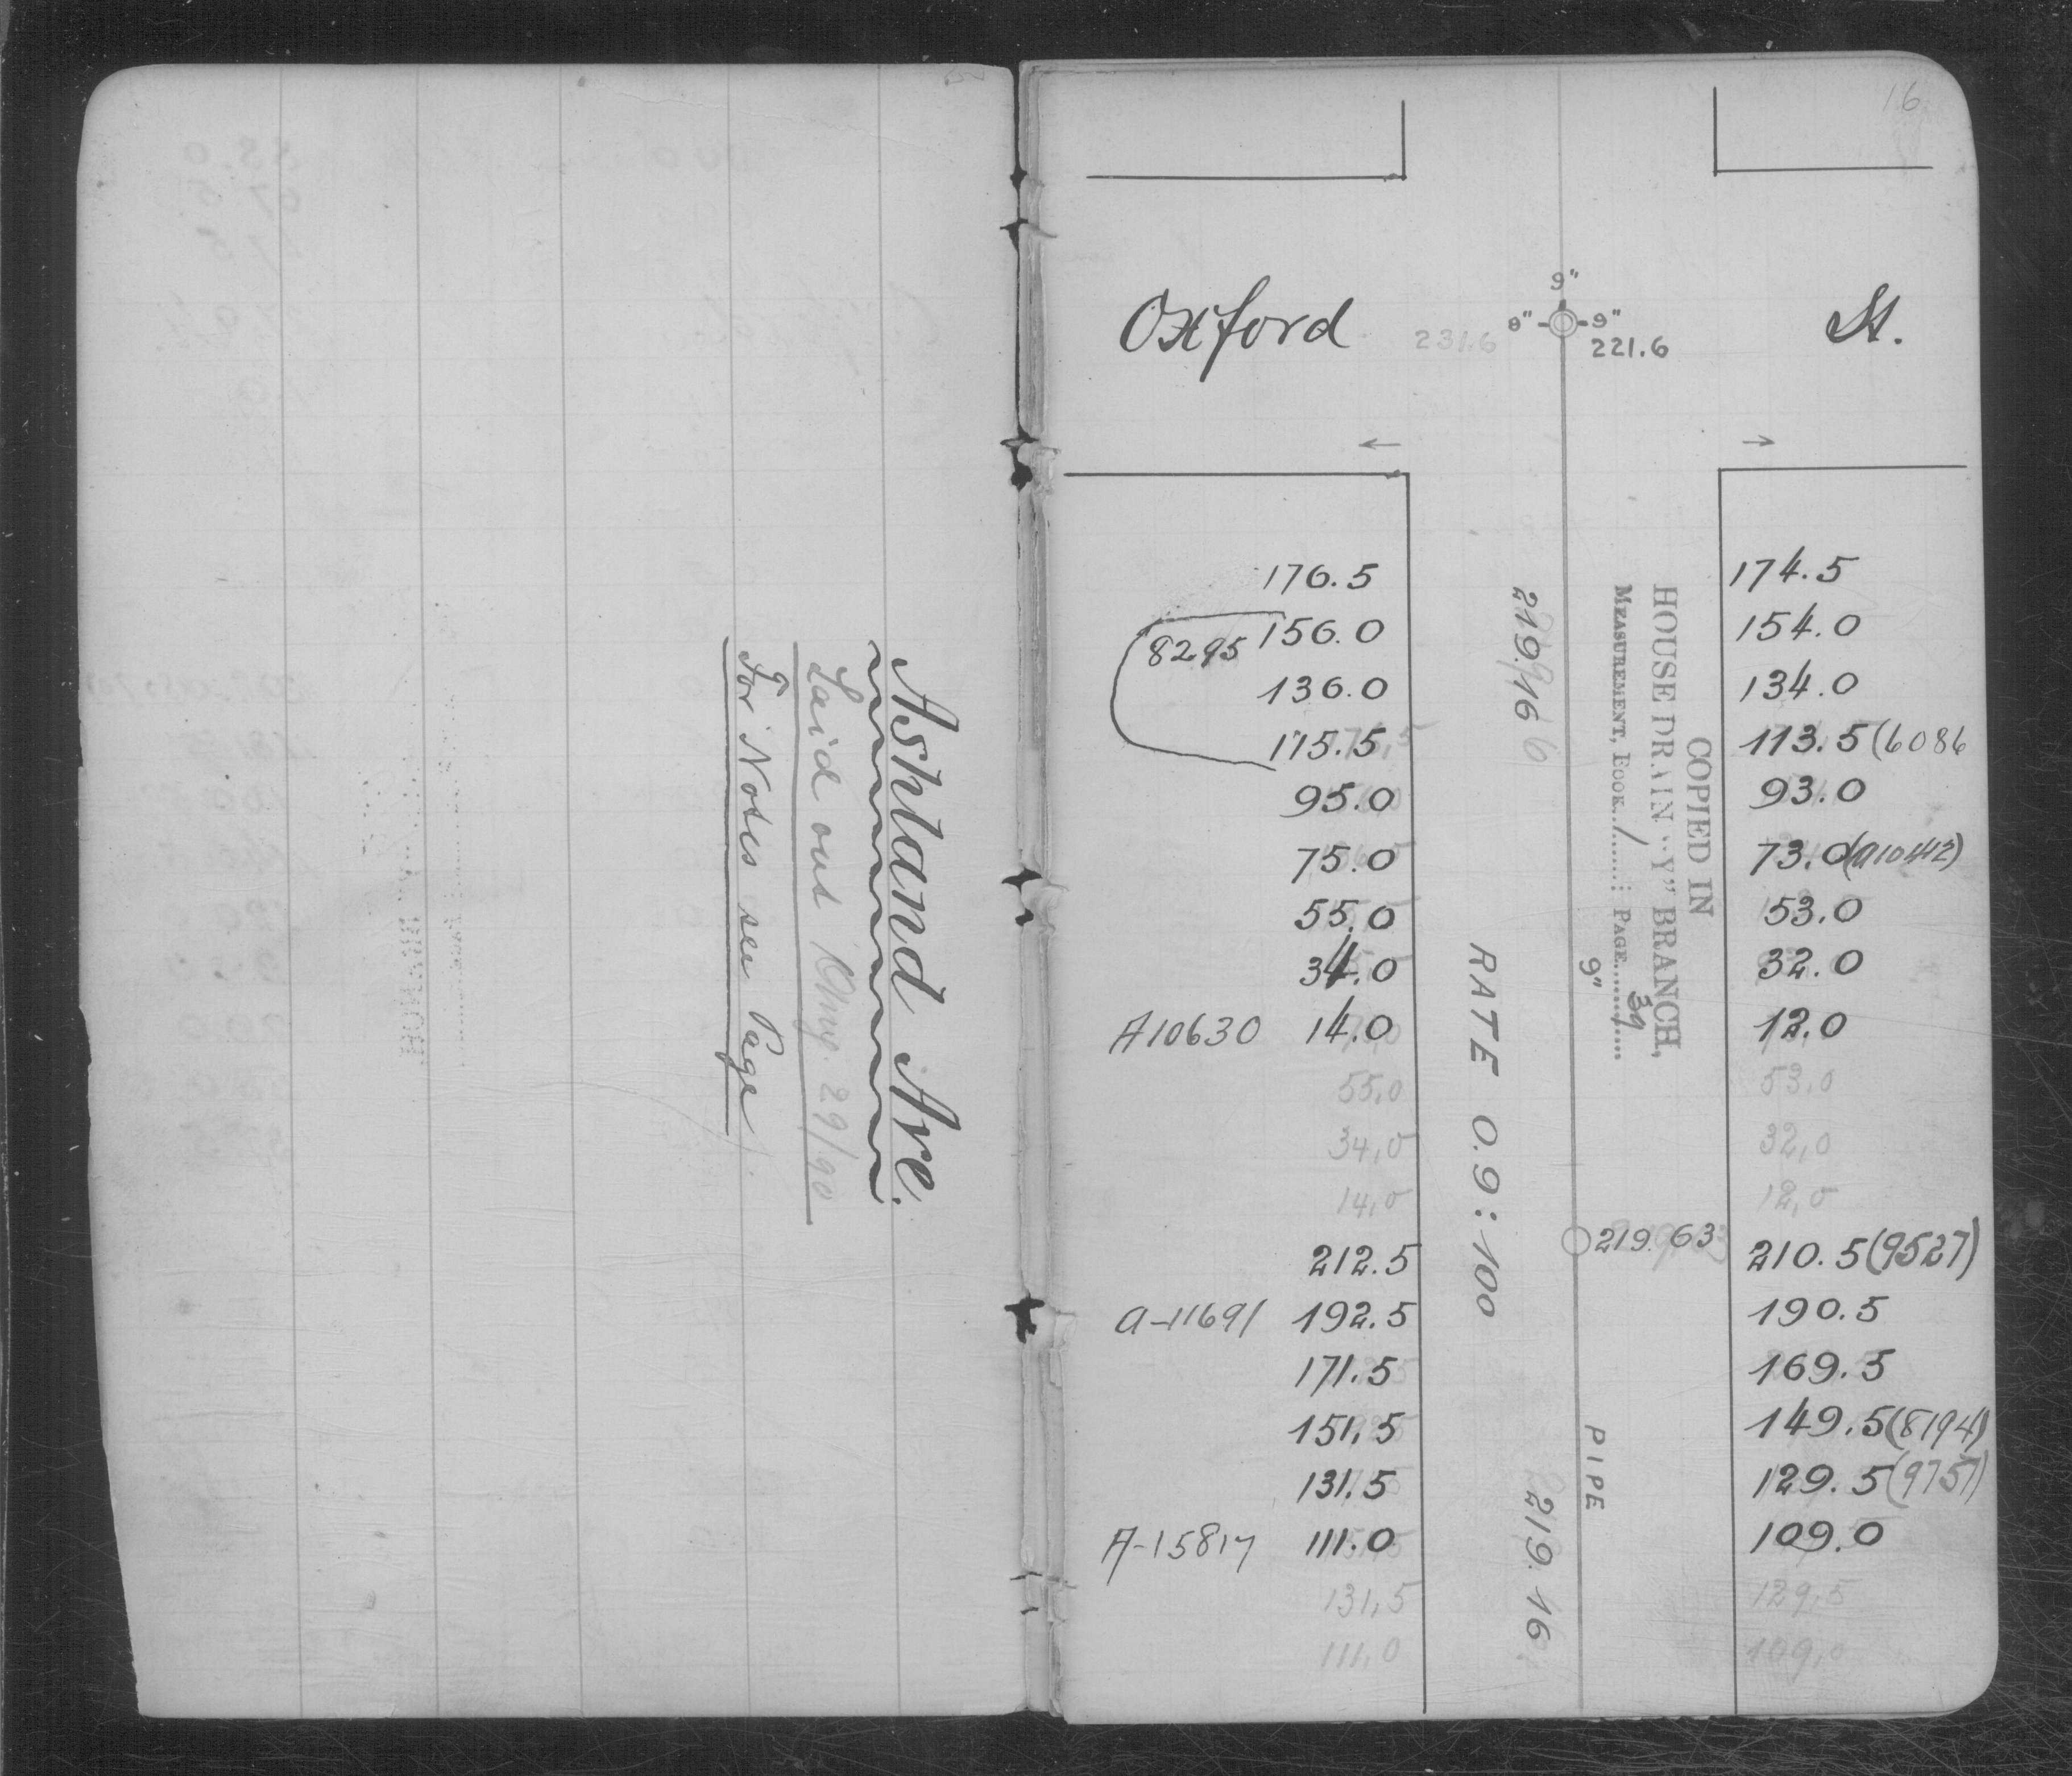 Ashland Ave.
Laid out Aug. 29/90
For Notes see Page
16
9"
Oxford 231.6 8" 9" St.
221.6
← →
176.5 174.5
8295 156.0 154.0
136.0 134.0
115.5 113.5 (6086
95.0 93.0
75.0 73.0 (a10442)
55.0 53.0
34.0 32.0
A10630 14.0 12.0
55,0 53,0
34,0 32,0
14,0 12,0
219.63
212.5 210.5 (9527)
a-11691 192.5 190.5
171.5 169.5
151.5 149.5 (8194)
131.5 129.5 (9757)
A-15817 111.0 109.0
131,5 129,5
111,0 109,0
COPIED IN
HOUSE DRAIN "Y" BRANCH,
MEASUREMENT, BOOK 1 : PAGE 39
9" PIPE
219.16 219.16
RATE 0.9:100